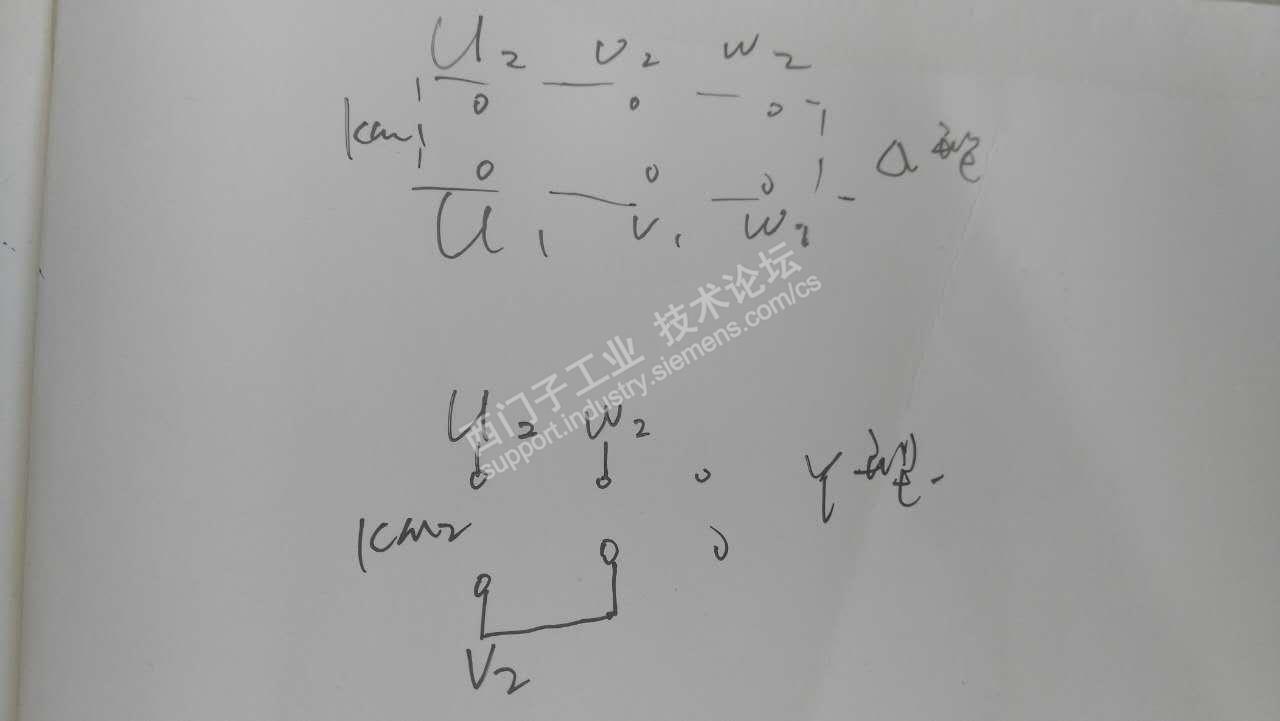 U2 V2 W2
KM1
Δ型
U1 V1 W1
西门子工业 技术论坛
support.industry.siemens.com/cs
U2 W2
Y型
KM2
V2